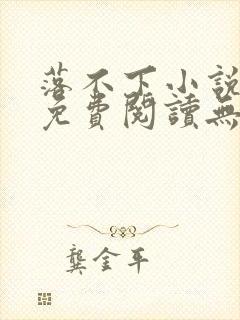 落不下小說
免費閱讀無
龔金平